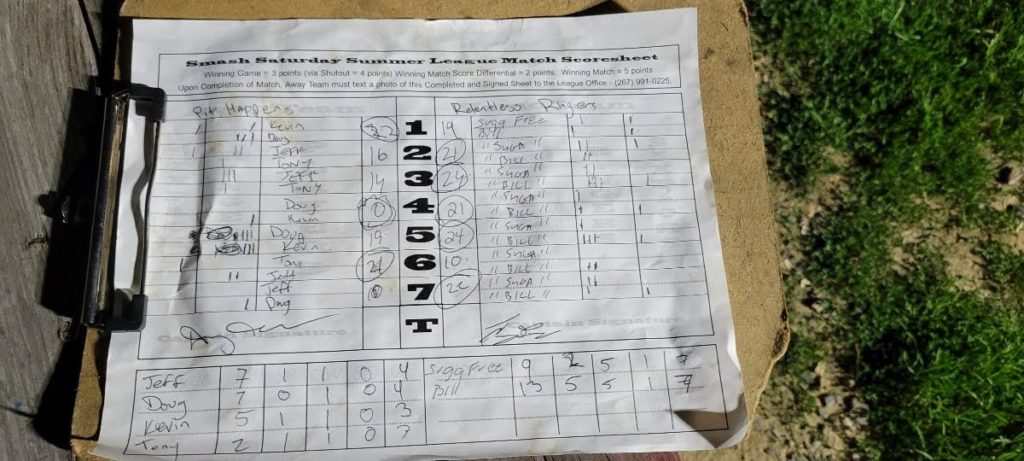 Smash Saturday Summer League Match Scoresheet
Winning Game = 3 points (via Shutout = 4 points) Winning Match Score Differential = 2 points. Winning Match = 5 points
Upon Completion of Match, Away Team must text a photo of this Completed and Signed Sheet to the League Office - (267) 991-0225
Happens Relentless Ringers
Kevin 1 19 Sugg Free
Doug Bill
Jeff 16 2 21 "Suga"
Tony "Bill"
Jeff 14 3 24 "Suga"
Tony "Bill"
Doug 0 4 21 "Suga"
Kevin "Bill"
Doug 19 5 24 "Suga"
Kevin "Bill"
Tony 21 6 10 "Suga"
Jeff "Bill"
Jeff 7 "Suga"
Doug "Bill"
T
Captain Signature
Jeff 7 1 1 0 4 Sugg Free 9 5 1
Doug 7 0 1 0 4 Bill 13 5 5 1
Kevin 5 1 1 0 3
Tony 2 1 1 0